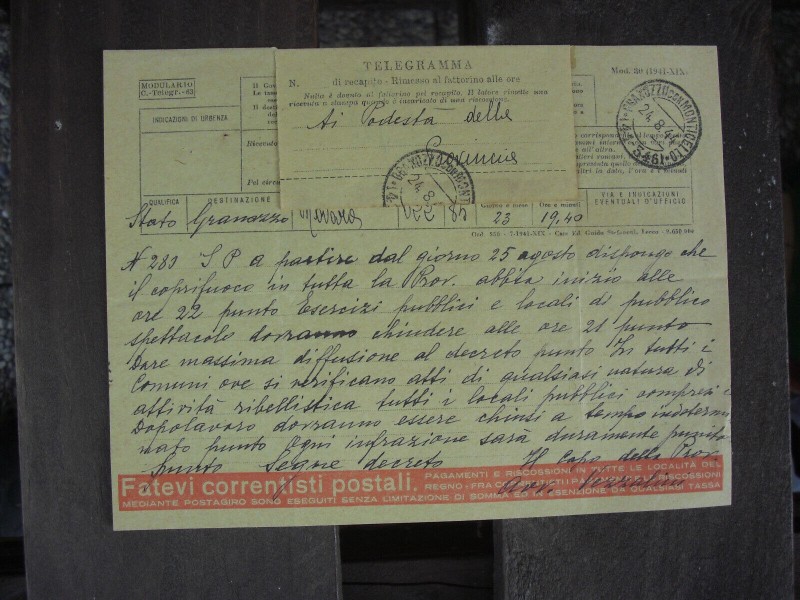 MODULARIO
C.-Telegr.-63
INDICAZIONI DI URGENZA
TELEGRAMMA
N. di recapito - Rimesso al fattorino alle ore
Nulla è dovuto al fattorino pel recapito. Il latore rimette una
ricevuta a stampa quando è incaricato di una riscossione.
Ai Podestà della
Provincia
Mod. 30 (1941-XIX)
GRANOZZO CON MONTICELLO
24.8.4
QUALIFICA
DESTINAZIONE
VIA E INDICAZIONI
EVENTUALI D'UFFICIO
Stato Granozzo Novara 23 19,40
N 283 S P a partire dal giorno 25 agosto dispongo che
il coprifuoco in tutta la Prov. abbia inizio alle
ore 22 punto Esercizi pubblici e locali di pubblico
spettacolo dovranno chiudere alle ore 21 punto
Dare massima diffusione al decreto punto In tutti i
Comuni ove si verificano atti di qualsiasi natura di
attività ribellistica tutti i locali pubblici compresi i
Dopolavoro dovranno essere chiusi a tempo indetermi
nato punto Ogni infrazione sarà duramente punita
punto Segue decreto Il Capo della Prov
Fatevi correntisti postali. PAGAMENTI E RISCOSSIONI IN TUTTE LE LOCALITÀ DEL
REGNO - FRA CORRENTISTI PAGAMENTI E RISCOSSIONI
MEDIANTE POSTAGIRO SONO ESEGUITI SENZA LIMITAZIONE DI SOMMA ED IN ESENZIONE DA QUALSIASI TASSA